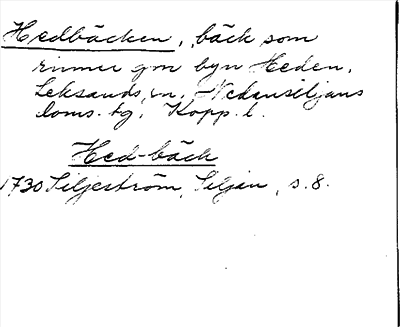 Hedbäcken, bäck som
rinner gm byn Heden,
Leksands sn, Nedansiljans
doms. tg, Kopp. l.
Hed-bäck
1730 Siljeström, Siljan, s. 8.